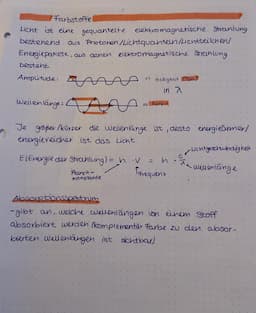 Farbstoffe
Licht ist eine gequantelte elektromagnetische Strahlung
bestehend aus Photonen/Lichtquanten/Lichtteilchen/
Energiepakete, aus denen elektromagnetische Strahlung
besteht
Amplitude:
in λ
Wellenlänge:
Je größer/kürzer die Wellenlänge ist, desto energieärmer/
energiereicher ist das Licht
E(Energie der Strahlung) = h · ν = h · c/λ
Lichtgeschwindigkeit
Wellenlänge
Planck-
konstante
Frequenz
Absorptionsspektrum
- gibt an, welche Wellenlängen von einem Stoff
absorbiert werden (komplementär Farbe zu den absor-
bierten Wellenlängen ist sichtbar)